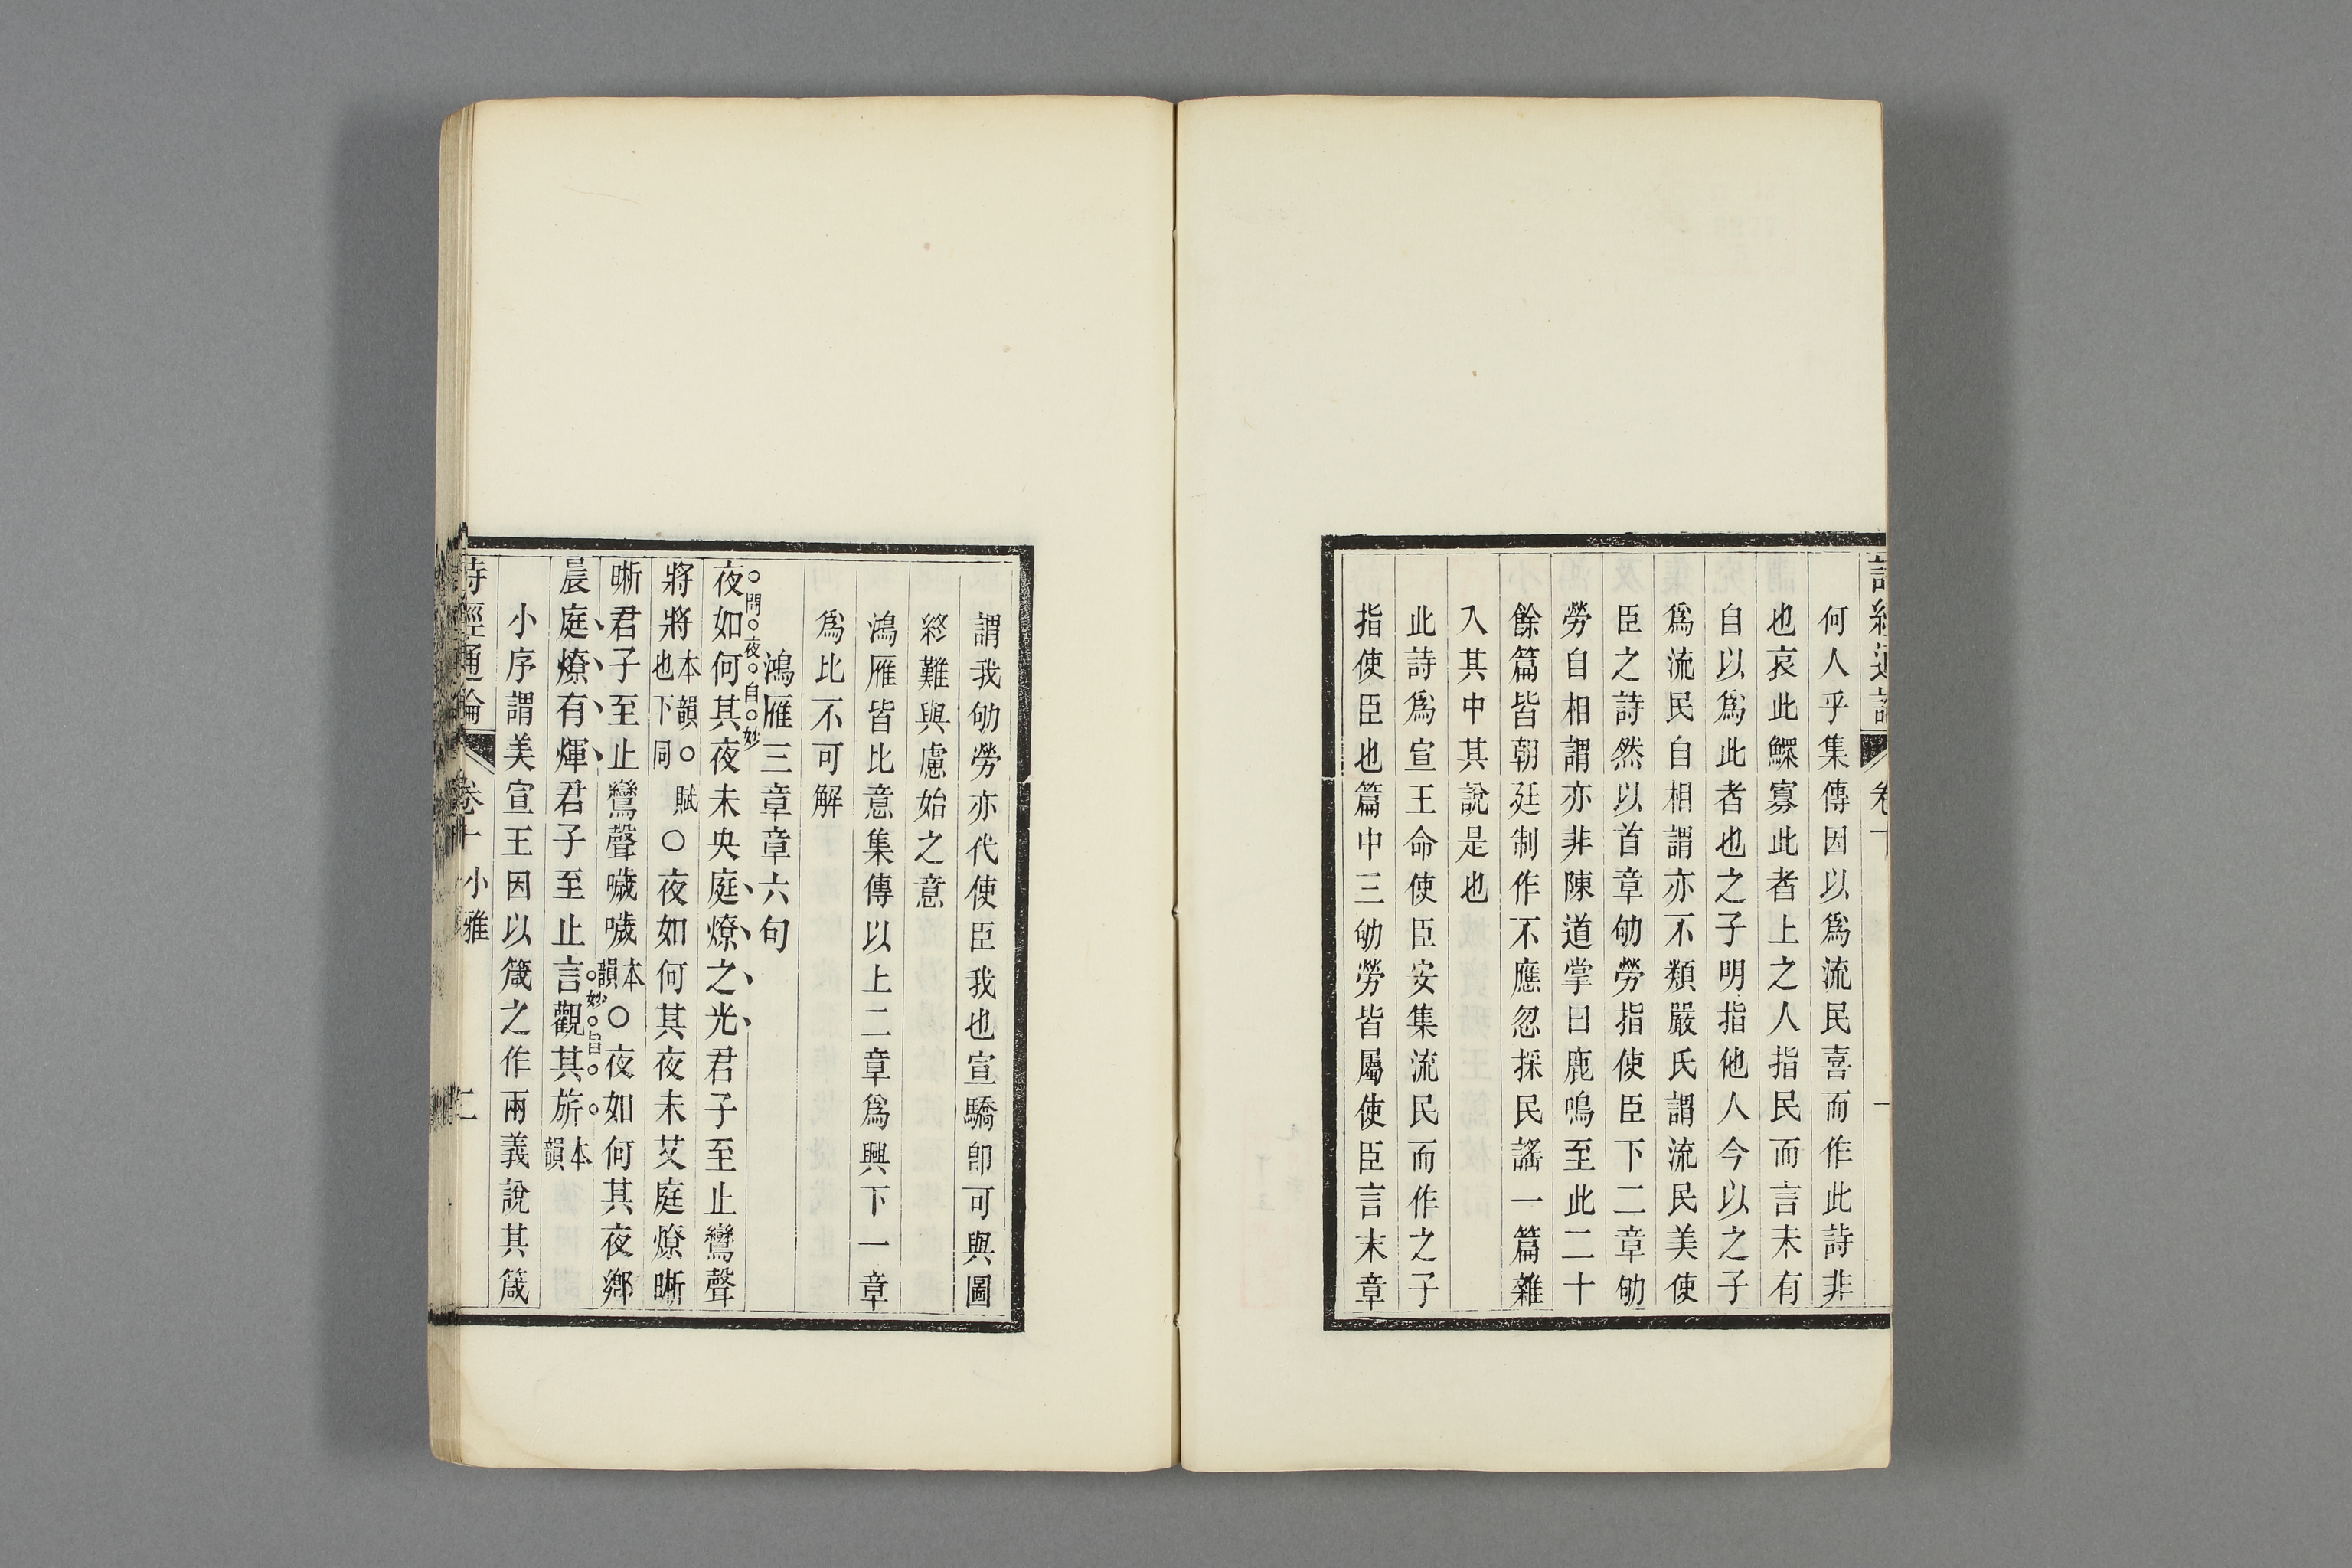 詩經通論 卷十 一
何人乎集傳因以爲流民喜而作此詩非
也哀此鰥寡此者上之人指民而言未有
自以爲此者也之子明指他人今以之子
爲流民自相謂亦不類嚴氏謂流民美使
臣之詩然以首章劬勞指使臣下二章劬
勞自相謂亦非陳道掌曰鹿鳴至此二十
餘篇皆朝廷制作不應忽採民謠一篇雜
入其中其說是也
此詩爲宣王命使臣安集流民而作之子
指使臣也篇中三劬勞皆屬使臣言末章
謂我劬勞亦代使臣我也宣驕卽可與圖
終難與慮始之意
鴻雁皆比意集傳以上二章爲興下一章
爲比不可解
鴻雁三章章六句
問夜自妙
夜如何其夜未央庭燎之光君子至止鸞聲
將將本韻○賦也下同○夜如何其夜未艾庭燎晣
晣君子至止鸞聲噦噦本韻○夜如何其夜鄉
妙旨
晨庭燎有煇君子至止言觀其旂本韻
小序謂美宣王因以箴之作兩義說其箴
詩經通論 卷十 小雅 二